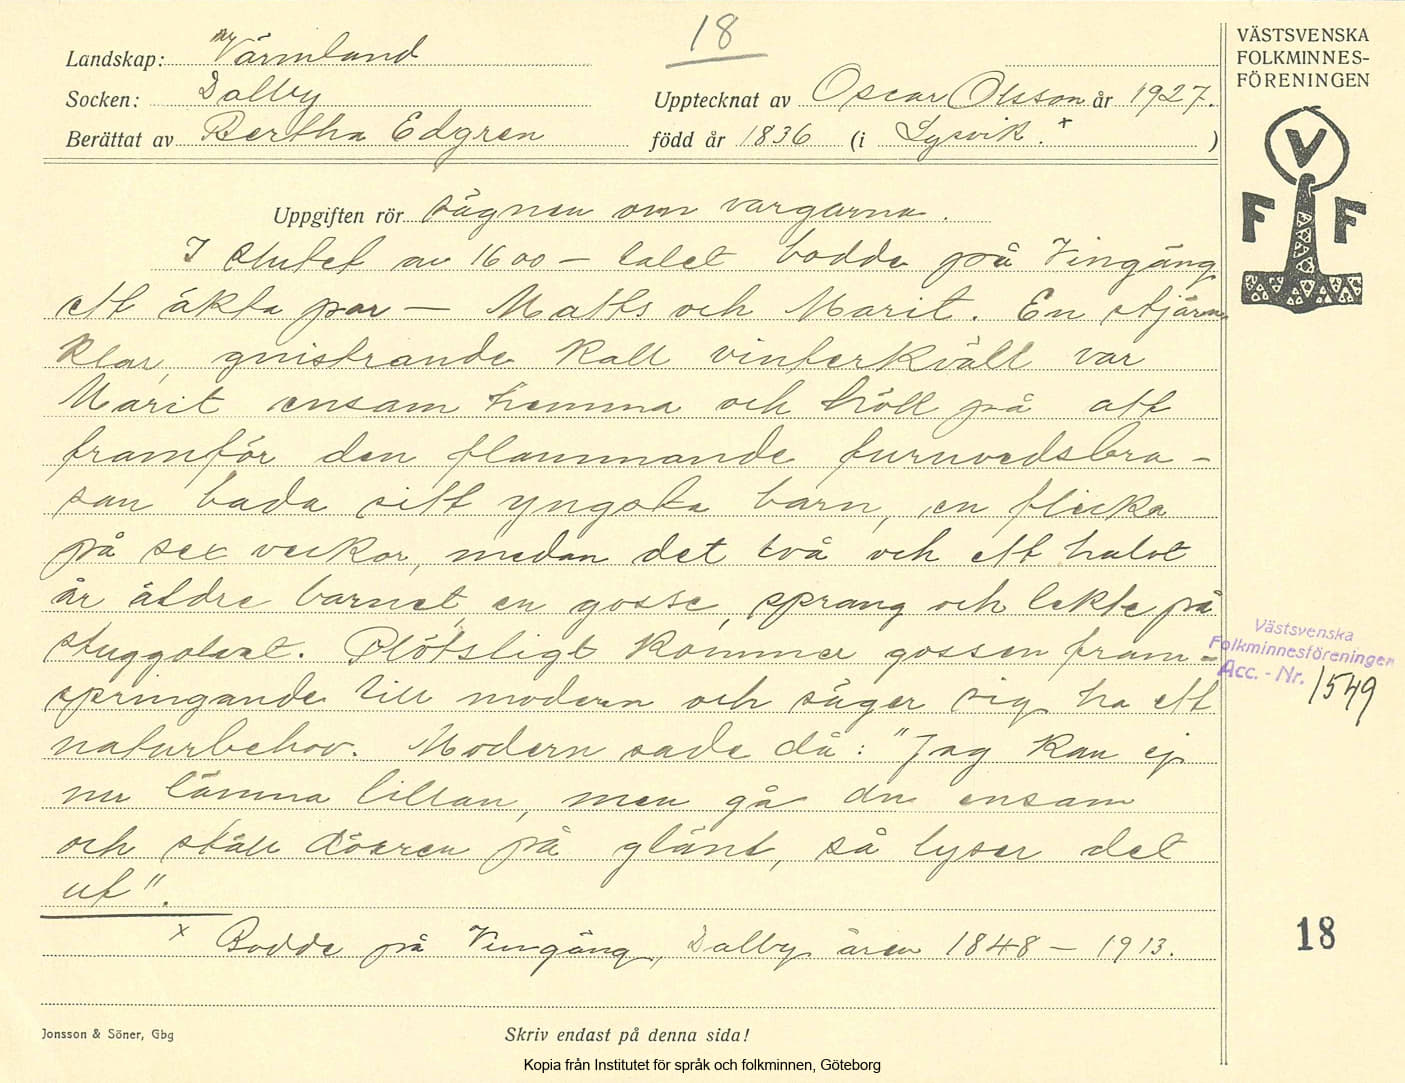 18
VÄSTSVENSKA
FOLKMINNES-
FÖRENINGEN
V
F F
Landskap: Värmland
Socken: Dalby
Upptecknat av Oscar Olsson år 1927.
Berättat av Bertha Edgren
född år 1836 (i Lysvik. x )
Uppgiften rör sägnen om vargarna.
I slutet av 1600-talet bodde på Vingäng
ett äkta par — Matts och Marit. En stjärn-
klar, gnistrande kall vinterkväll var
Marit ensam hemma och höll på att
framför den flammande furuvedsbra-
san bada sitt yngsta barn, en flicka
på sex veckor, medan det två och ett halvt
år äldre barnet, en gosse, sprang och lekte på
stuggolvet. Plötsligt kommer gossen fram-
springande till modern och säger sig ha ett
naturbehov. Modern sade då: "Jag kan ej
nu lämna lillan, men gå du ensam
och ställ dörren på glänt, så lyser det
ut".
x Bodde på Vingäng, Dalby åren 1848 — 1913.
Västsvenska
Folkminnesföreningen
Acc. - Nr. 1549
18
Jonsson & Söner, Gbg
Skriv endast på denna sida!
Kopia från Institutet för språk och folkminnen, Göteborg